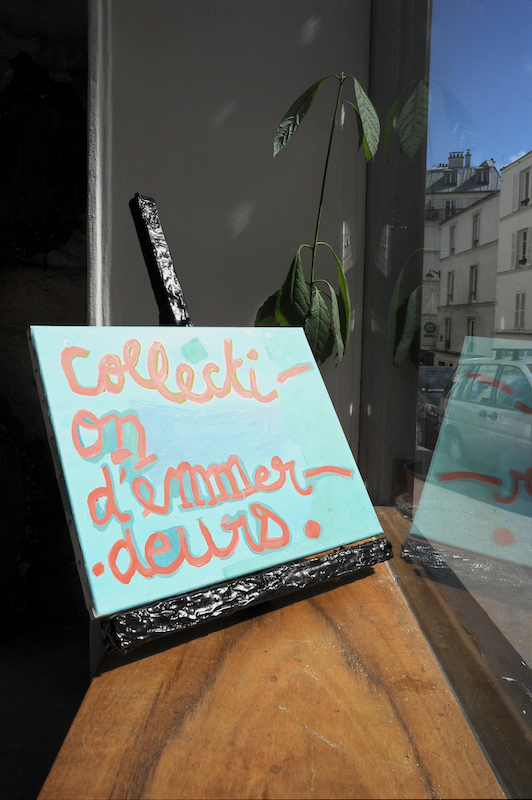 collecti-
on
d'émmer-
.deurs.